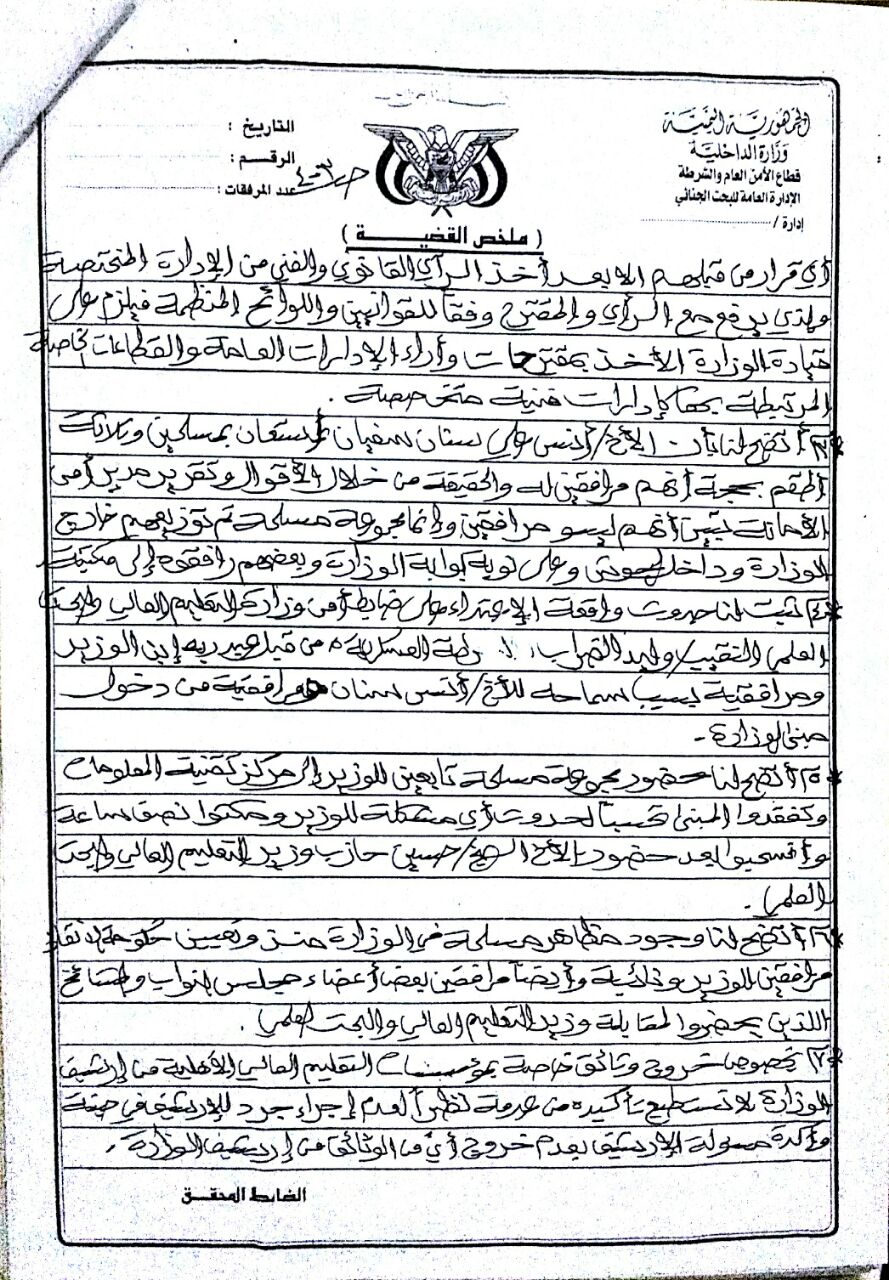 الجمهورية اليمنية
وزارة الداخلية
قطاع الأمن العام والشرطة
الإدارة العامة للبحث الجنائي
إدارة /
التاريخ :
الرقم :
عدد المرفقات :
( ملخص القضيــة )
أي قرار من قبلهم الا بعد أخذ الرأي القانوني والفني من الإدارة المختصة
والذي يرفع مع الرأي والمقترح وفقاً للقوانين واللوائح المنظمة فيلزم على
قيادة الوزارة الأخذ بمقترحات وأراء الإدارات العامة والقطاعات الخاصة
المرتبطة بها كإدارات فنية متخصصة .
أتضح لنا بأن الأخ/ أنس علي سنان سفيان أستعان بمسلحين وثلاثة
أطقم بحجة أنهم مرافقين له والحقيقة من خلال الأقوال وتقرير مدير أمن
الأمانة تبين أنهم ليسو مرافقين وانما مجموعة مسلحة تم توزيعهم خارج
الوزارة وداخل الحوش وعلى نوبه بوابة الوزارة وبعضهم رافقوه إلى مكتبه
ثبت لنا حدوث واقعة الإعتداء على ضابط أمن وزارة التعليم العالي والبحث
العلمي النقيب/ وليد الضراب العسكرية من قبل عبدربه إبن الوزير
ومرافقية بسبب سماحه للأخ/ أنس سنان ومرافقية من دخول
مبنى الوزارة -
٥) أتضح لنا حضور مجموعة مسلحة تابعين للوزير إلى مركز تقنية المعلومات
وتفقدوا المبنى تحسباً لحدوث أي مشكلة للوزير ومكثوا نصف ساعة
وأنسحبوا بعد حضور الأخ الشيخ/ حسين حازب وزير التعليم العالي والبحث
العلمي .
٦) أتضح لنا وجود مظاهر مسلحة في الوزارة منذ تعيين حكومة الانقاذ
مرافقين للوزير ونائبة وأيضاً مرافقين بعض أعضاء مجلس النواب والمشائخ
اللذين يحضروا لمقابلة وزير التعليم العالي والبحث العلمي .
٧) بخصوص خروج وثائق خاصة بمؤسسات التعليم العالي الأهلية من إرشيف
الوزارة لا نستطيع تأكيده من عدمة نظراً لعدم إجراء جرد للإرشيف في حينة
وأكدة مسؤلة الإرشيف بعدم خروج أي من الوثائق من إرشيف الوزارة .
الضابط المحقق